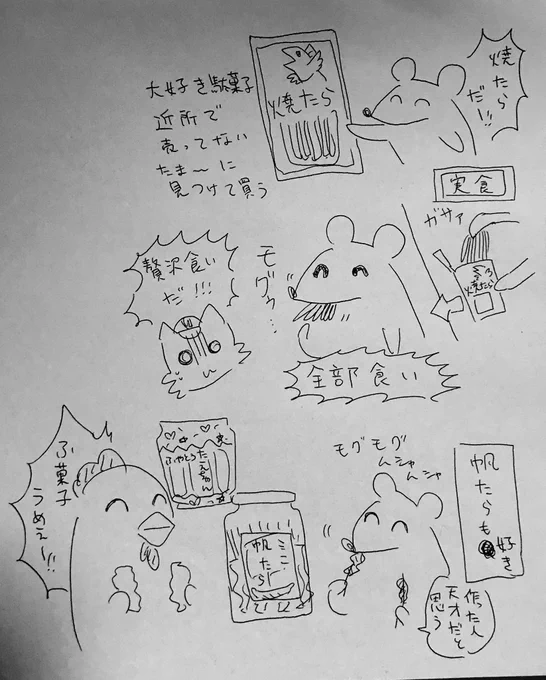 焼たら
だー!!
大好き駄菓子
近所で
売ってない
たま〜に
見つけて買う
焼たら
実食
ガサァ
焼たら
モグゥ…
贅沢食い
だ!!!
全部食い
ふ菓子
うめぇー!!
たえちゃん
ふやとう
ミニ
帆たら
モグモグ
ムシャムシャ
帆たらも好き
作った人
天才だと
思う